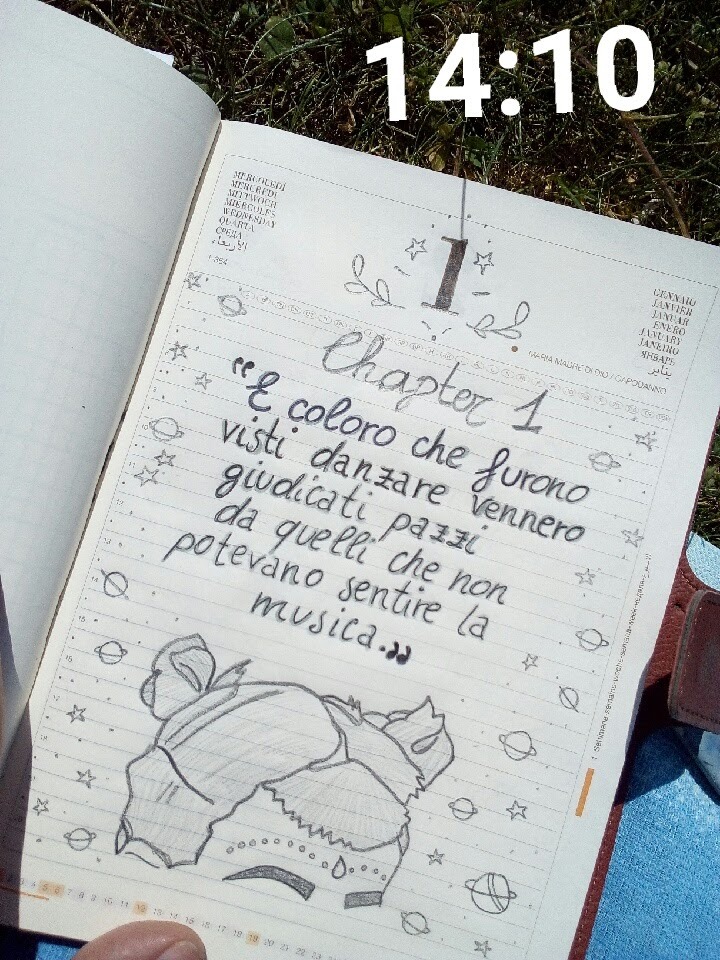 14:10
MERCOLEDÌ
MERCREDI
MITTWOCH
MIERCOLES
WEDNESDAY
QUARTA
СРЕДА
الأربعاء
1-364
1
GENNAIO
JANVIER
JANUAR
ENERO
JANUARY
JANEIRO
ЯНВАРЬ
يناير
MARIA MADRE DI DIO / CAPODANNO
Chapter 1
"E coloro che furono
visti danzare vennero
giudicati pazzi
da quelli che non
potevano sentire la
musica."